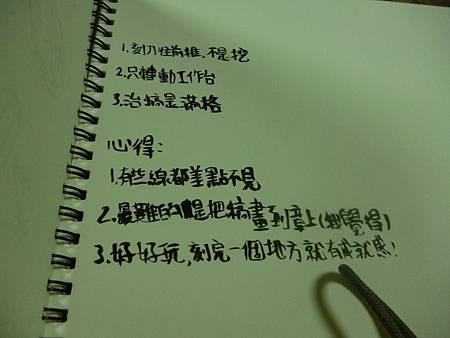 1.刻刀往前推,不是挖
2.只轉動工作台
3.治搞是滿格
心得:
1.有些線都差點不見
2.最難的是把稿畫到章上(我覺得)
3.好好玩,刻完一個地方就有成就感!